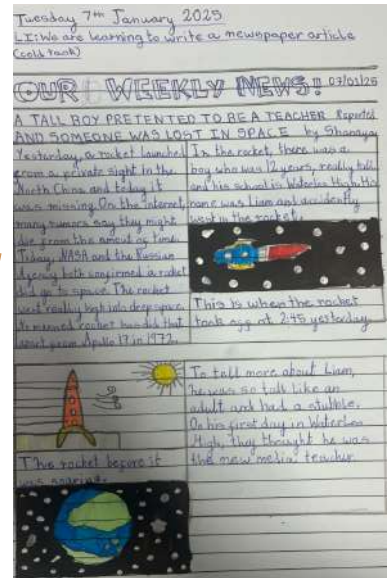 Tuesday 7th January 2025
LI: We are learning to write a newspaper article
(cold task)
OUR WEEKLY NEWS! 07/01/25
A TALL BOY PRETENTED TO BE A TEACHER Reported
AND SOMEONE WAS LOST IN SPACE by Shanaya
Yesterday, a rocket launched
from a private sight in the
North China and today it
was missing. On the internet,
many rumors say they might
die from the amout of time.
Today, NASA and the Russian
Agency both confirmed a rocket
did go to space. The rocket
went really high into deep space.
No manned rocket has did that
apart from Apollo 17 in 1972.
In the rocket, there was a
boy who was 12 years, really tall
and his school is Waterloo High. His
name was Liam and accidently
went in the rocket.
This is when the rocket
took off at 2:45 yesterday.
The rocket before it
was soaring.
To tell more about Liam,
he was so tall like an
adult and had a stubble.
On his first day in Waterloo
High, they thought he was
the new media teacher